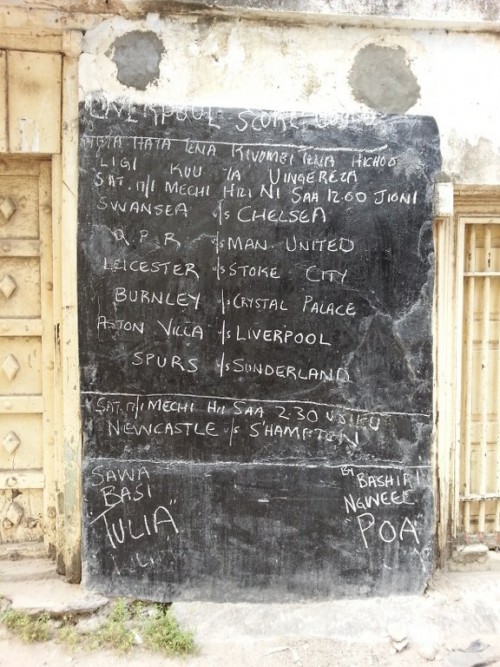 LIVERPOOL SCORE BOARD
HATA TENA KIVUMBI TENA HICHOO
LIGI KUU YA UINGEREZA
SAT. 17/1 MECHI HIZI NI SAA 12.00 JIONI
SWANSEA V/S CHELSEA
Q.P.R V/S MAN. UNITED
LEICESTER V/S STOKE CITY
BURNLEY V/S CRYSTAL PALACE
ASTON VILLA V/S LIVERPOOL
SPURS V/S SUNDERLAND
SAT. 17/1 MECHI HII SAA 2.30 USIKU
NEWCASTLE V/S S'HAMPTON
SAWA
BASI
TULIA"
BY BASHIRI
NGWEEE
"POA